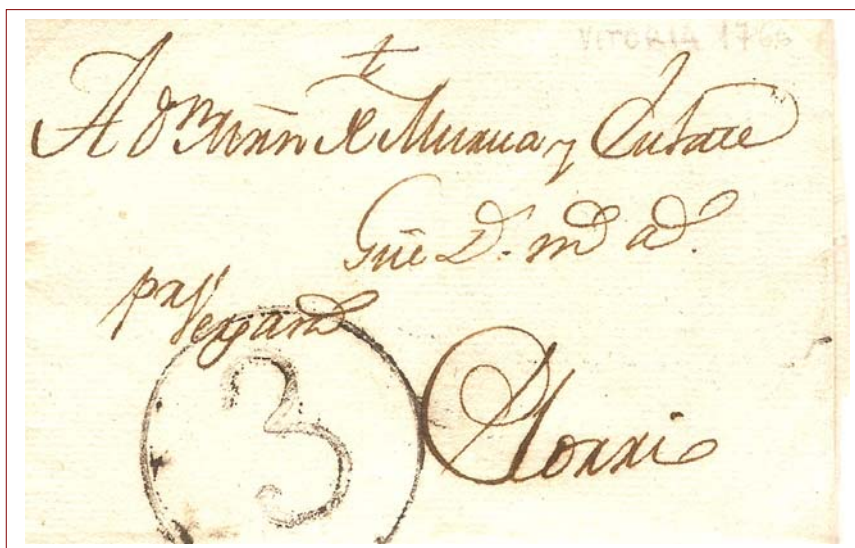 VITORIA 1765
A Dn Mrñ de Murua y Eulate
Gue D. md ad.
pr Vergara
3
Elorrio